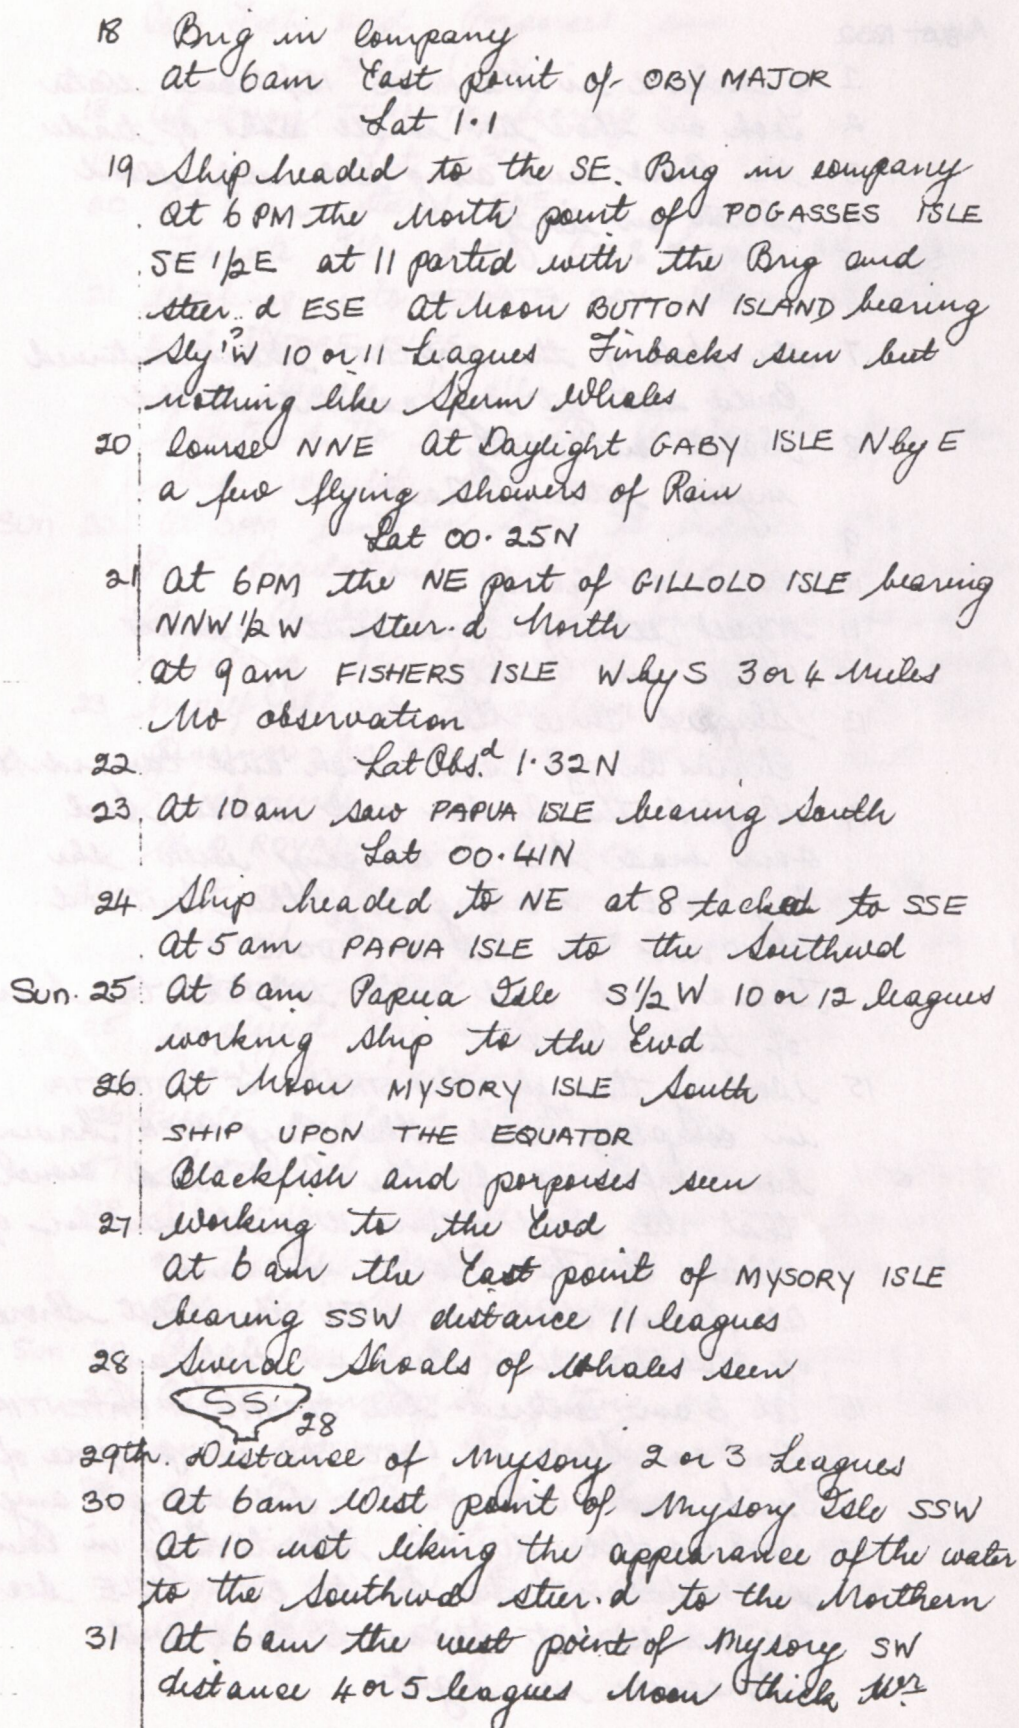 18 Brig in company
At 6am East point of OBY MAJOR
Lat 1.1
19 Ship headed to the SE. Brig in company
At 6 PM the North point of POGASSES ISLE
SE 1/2 E at 11 parted with the Brig and
steer..d ESE At Noon BUTTON ISLAND bearing
Sly ? W 10 or 11 Leagues Finbacks seen but
nothing like Sperm Whales
20 Course NNE At Daylight GABY ISLE N by E
a few flying showers of Rain
Lat 00.25N
21 At 6PM the NE part of GILLOLO ISLE bearing
NNW 1/2 W steer.d North
at 9am FISHERS ISLE W by S 3 or 4 Miles
No observation
22. Lat Obs.d 1.32N
23. At 10am saw PAPUA ISLE bearing South
Lat 00.41N
24 Ship headed to NE at 8 tacked to SSE
At 5am PAPUA ISLE to the Southwd
Sun. 25 At 6am Papua Isle S 1/2 W 10 or 12 leagues
working ship to the Ewd
26 At Noon MYSORY ISLE South
SHIP UPON THE EQUATOR
Blackfish and porpoises seen
27 Working to the Ewd
At 6am the East point of MYSORY ISLE
bearing SSW distance 11 leagues
28 Several Shoals of Whales seen
SS 28
29th. Distance of Mysory 2 or 3 Leagues
30 At 6am West point of Mysory Isle SSW
At 10 not liking the appearance of the water
to the Southwd steer.d to the Northern
31 At 6am the west point of Mysory SW
distance 4 or 5 leagues Noon thick Wr